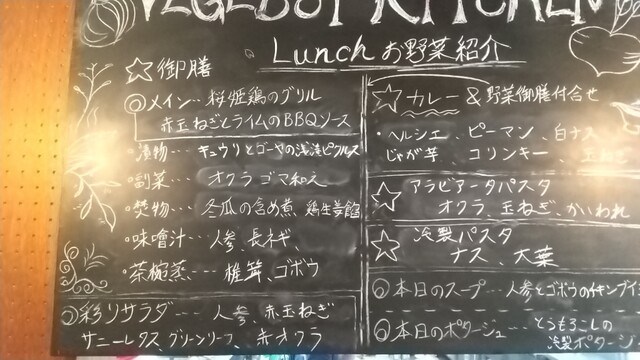 VEGEBOY KITCHEN
Lunch お野菜紹介
☆御膳
◎メイン… 桜姫鶏のグリル
赤玉ねぎとライムのBBQソース
・漬物… キュウリとゴーヤの浅漬ピクルス
・副菜… オクラゴマ和え
・焚物… 冬瓜の含め煮、鶏生姜餡
・味噌汁… 人参、長ネギ、
・茶椀蒸…. 椎茸、ゴボウ
◎彩りサラダ… 人参、赤玉ねぎ
サニーレタス グリーンリーフ、赤オクラ
☆カレー & 野菜御膳付合せ
・ヘルシエ、ピーマン、白ナス
じゃが芋、コリンキー、玉ねぎ
☆アラビアータパスタ
オクラ、玉ねぎ、かいわれ
☆冷製パスタ
ナス、大葉
◎本日のスープ… 人参とゴボウの
◎本日のポタージュ… とうもろこしの
冷製ポタージュ